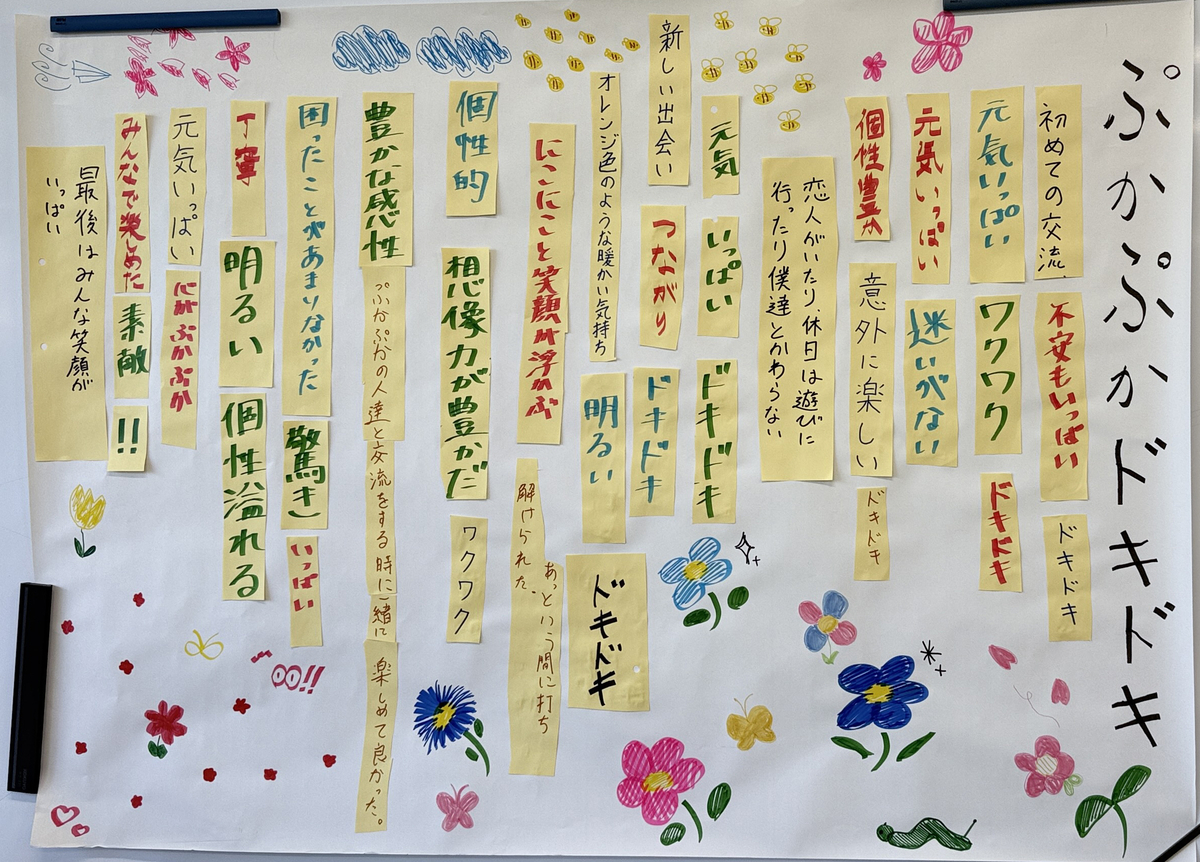 ぷかぷかドキドキ
初めての交流、
不安もいっぱい
ドキドキ
元気いっぱい
ワクワク
ドキドキ
元気いっぱい
迷いがない
個性豊か
意外に楽しい
ドキドキ
恋人がいたり、休日は遊びに
行ったり僕達とかわらない
元気
いっぱい
ドキドキ
新しい出会い
つながり
ドキドキ
オレンジ色のような暖かい気持ち
明るい
ドキドキ
にこにこと笑顔が浮かぶ
あっという間に打ち
解けられた、
個性的
想像力が豊かだ
ワクワク
豊かな感性
ぷかぷかの人達と交流をする時に一緒に
楽しめて良かった。
困ったことがあまりなかった
驚き
いっぱい
丁寧
明るい
個性溢れる
元気いっぱい
心がぷかぷか
みんなで楽しめた
素敵
!!
最後はみんな笑顔が
いっぱい